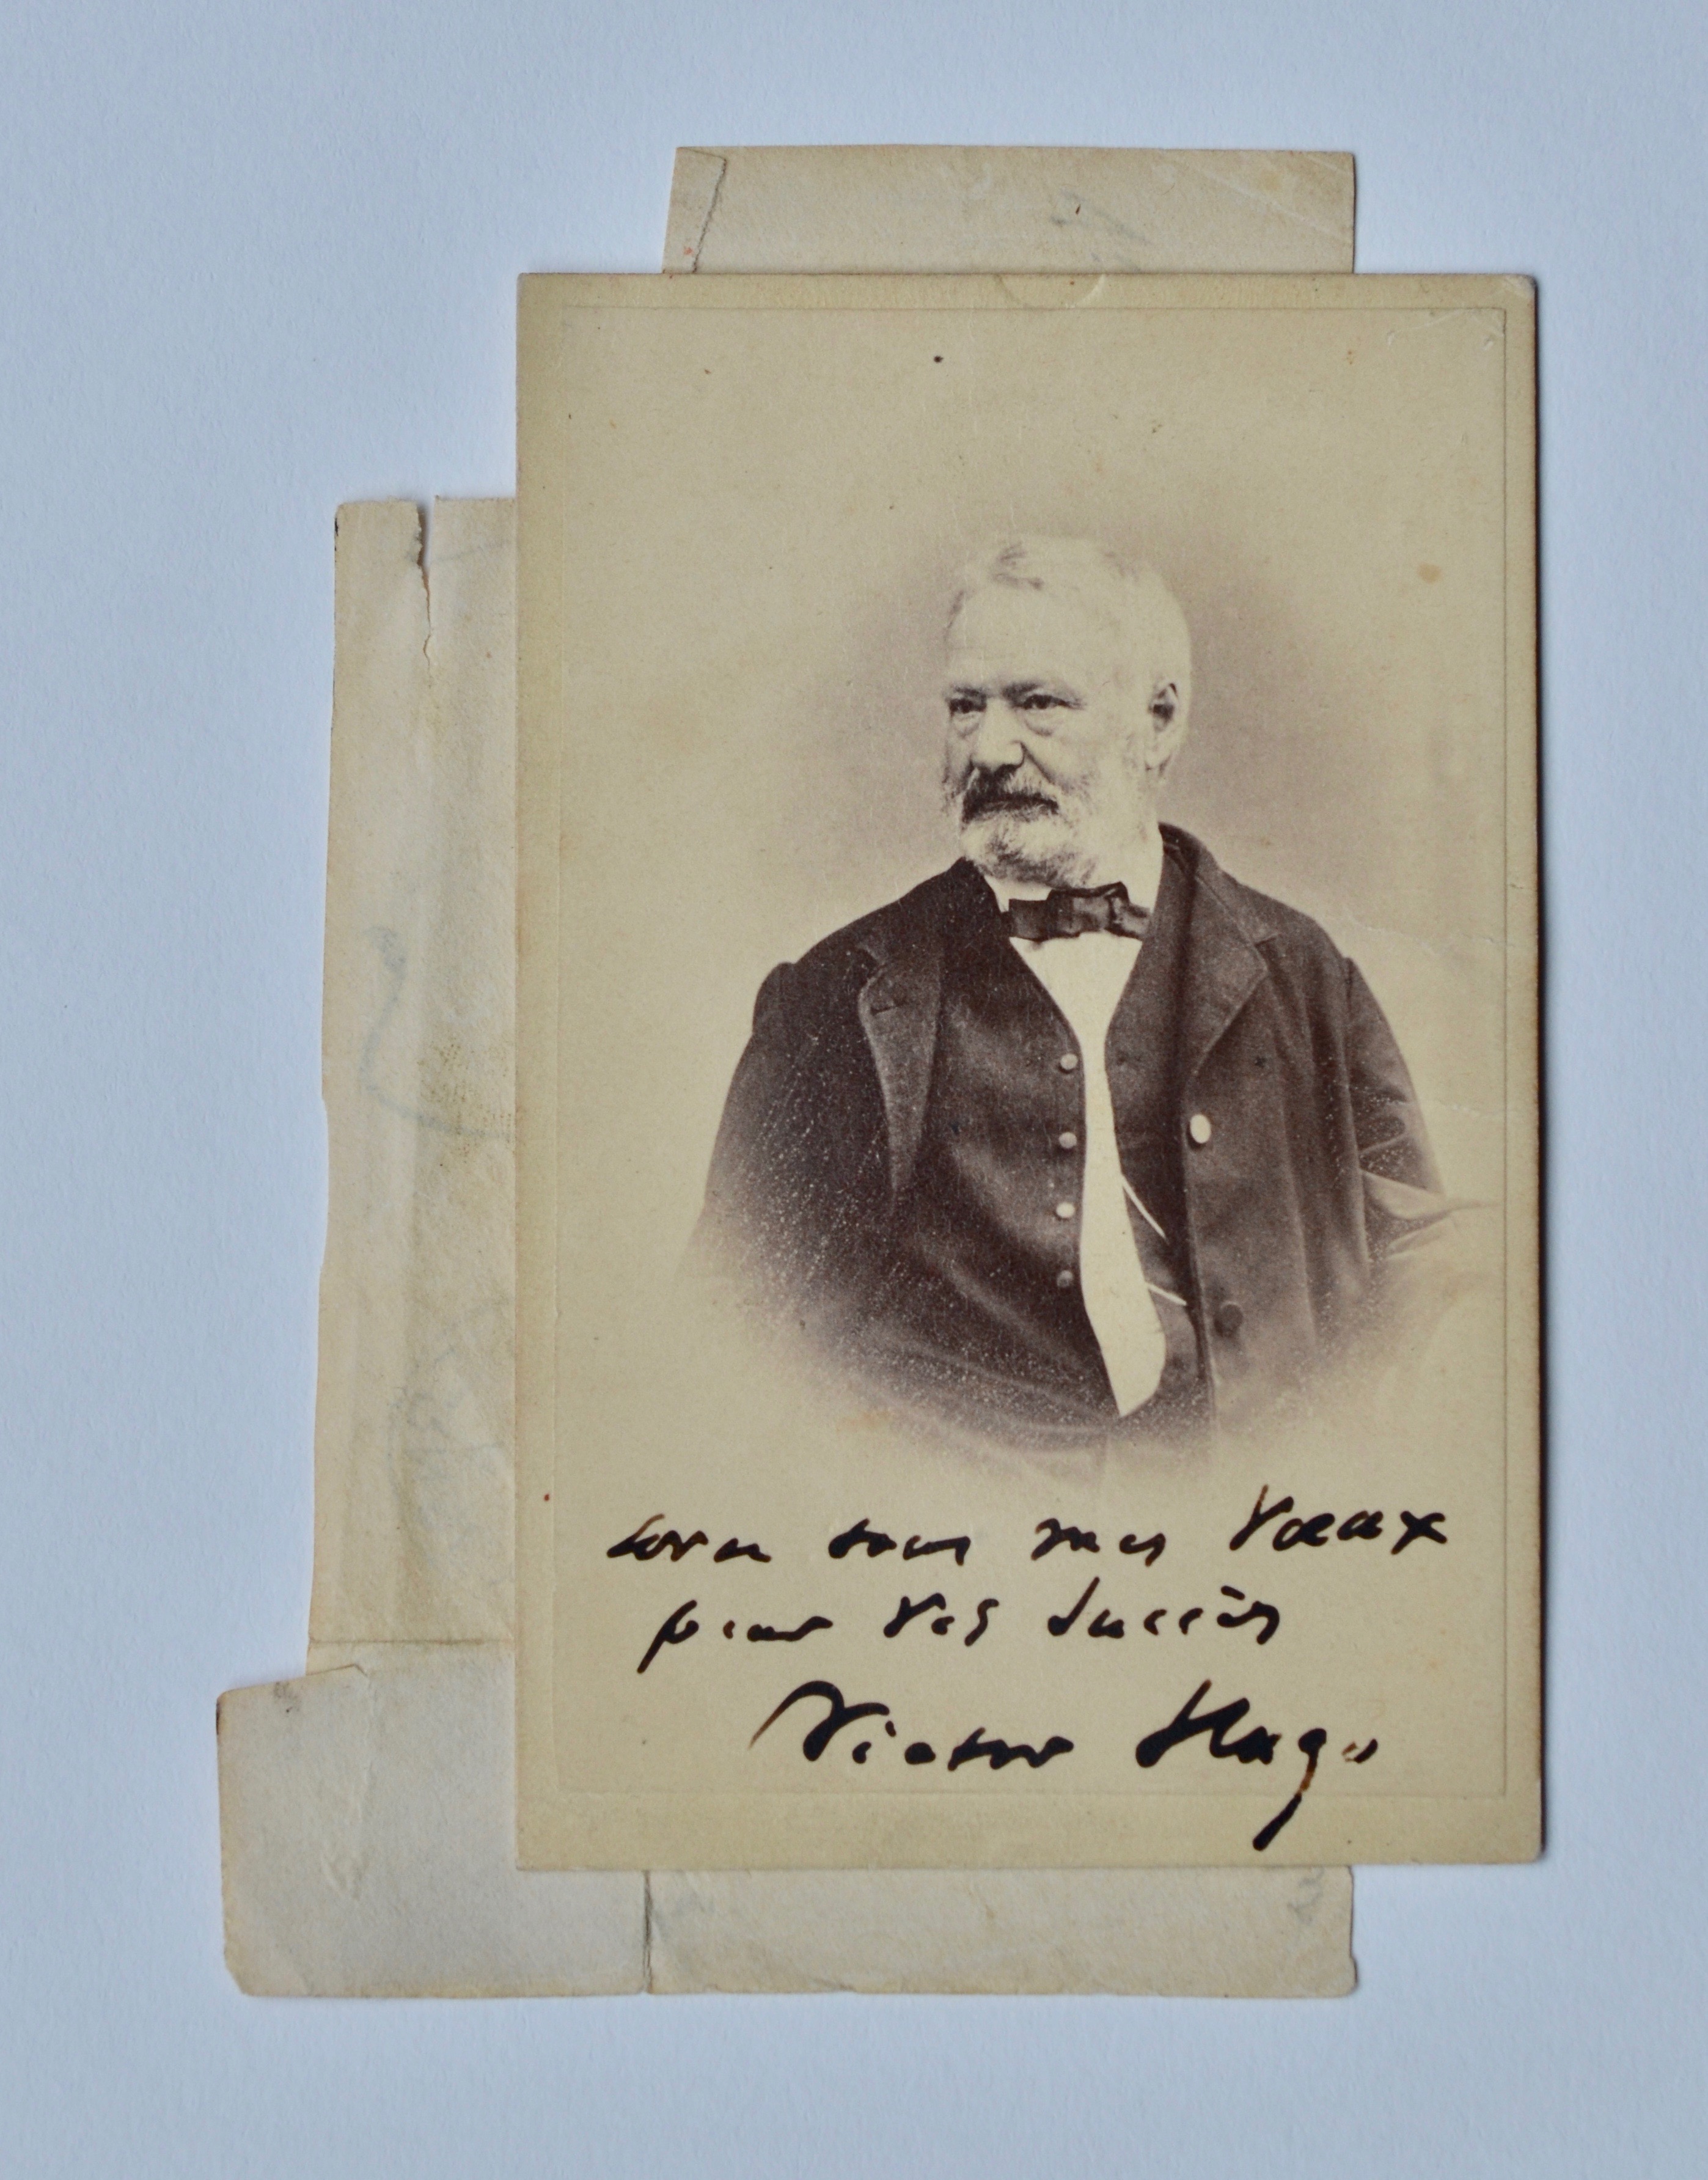 avec tous mes vœux
pour vos succès
Victor Hugo